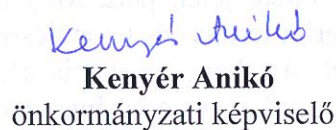 Kenyér Anikó
Kenyér Anikó
önkormányzati képviselő